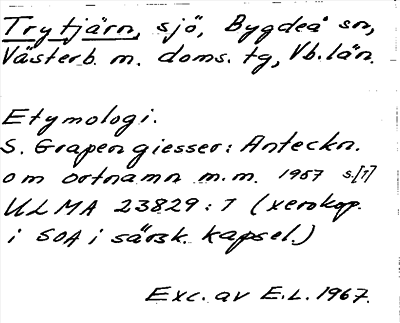 Trytjärn, sjö, Bygdeå sn,
Västerb. m. doms. tg, Vb. län.
Etymologi.
S. Grapengiesser: Anteckn.
om ortnamn m.m. 1957 s.[1]
ULMA 23829:1 (xerokop.
i SOA i särsk. kapsel.)
Exc. av E.L. 1967.